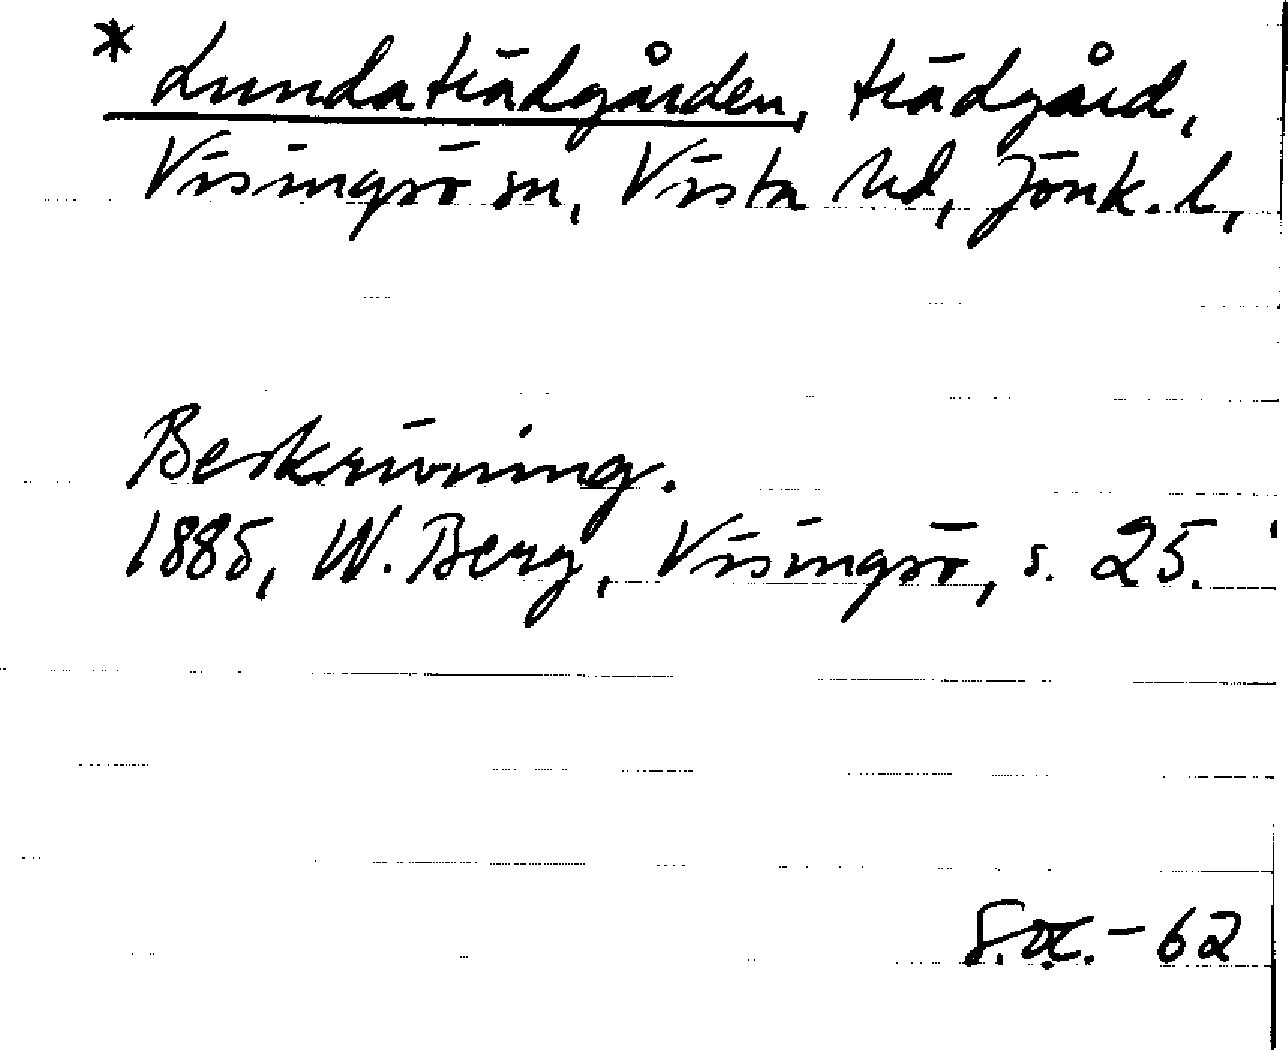 * Lundaträdgården, trädgård,
Visingsö sn, Vista hd, Jönk. l,
Beskrivning.
1885, W. Berg, Visingsö, s. 25.
-62